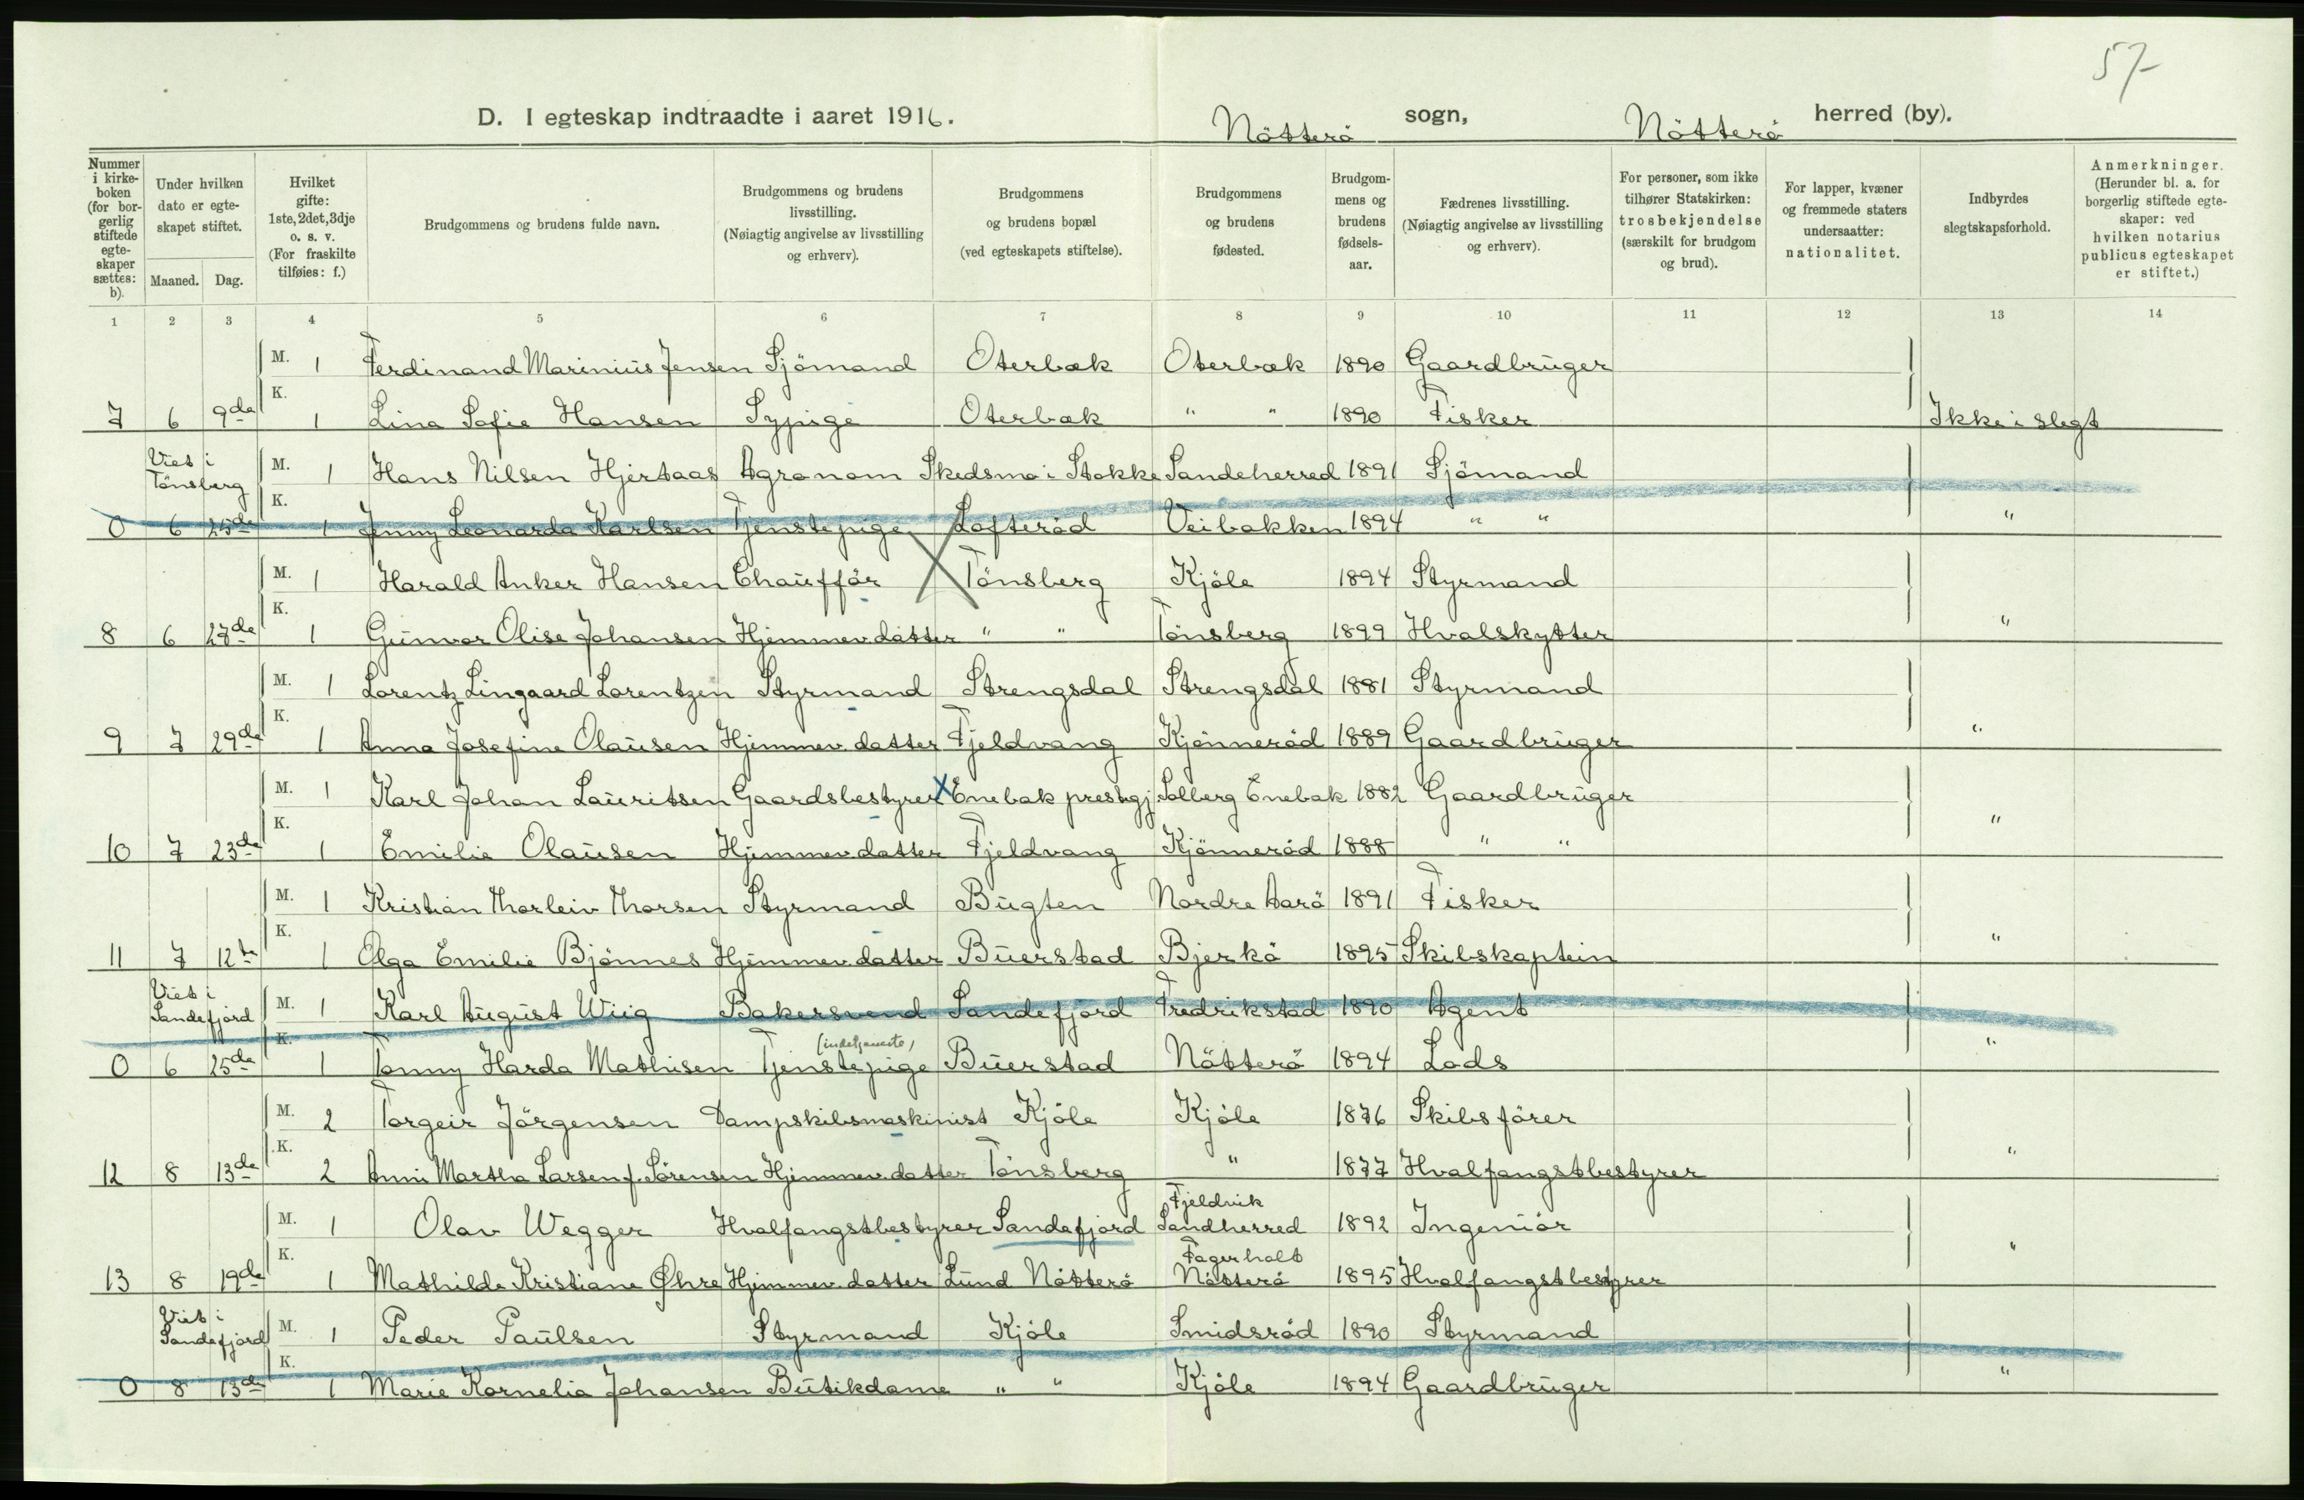 57-
D. I egteskap indtraadte i aaret 1916. Nötterö sogn, Nötterö herred (by).
Nummer i kirke-boken (for bor-gerlig stiftede egte-skaper sættes: b).
Under hvilken dato er egte-skapet stiftet.
Maaned. Dag.
Hvilket gifte: 1ste, 2det, 3dje o. s. v. (For fraskilte tilføies: f.)
Brudgommens og brudens fulde navn.
Brudgommens og brudens livsstilling. (Nøiagtig angivelse av livsstilling og erhverv).
Brudgommens og brudens bopæl (ved egteskapets stiftelse).
Brudgommens og brudens fødested.
Brudgom-mens og brudens fødsels-aar.
Fædrenes livsstilling. (Nøiagtig angivelse av livsstilling og erhverv).
For personer, som ikke tilhører Statskirken: trosbekjendelse (særskilt for brudgom og brud).
For lapper, kvæner og fremmede staters undersaatter: nationalitet.
Indbyrdes slegtskapsforhold.
Anmerkninger. (Herunder bl. a. for borgerlig stiftede egte-skaper: ved hvilken notarius publicus egteskapet er stiftet.)
1 2 3 4 5 6 7 8 9 10 11 12 13 14
M. 1 Ferdinand Marinius Jensen Sjömand Oterbæk Oterbæk 1890 Gaardbruger
K.
7 6 9de 1 Lina Sofie Hansen Sypige Oterbæk " " 1890 Fisker Ikke i slegt
Viet i Tönsberg M. 1 Hans Nilsen Hjertaas Agronom Skedsmo i Stokke Sandeherred 1891 Sjömand
K.
0 6 25de 1 Jenny Leonarda Karlsen Tjenstepige Lofteröd Veibakken 1894 " " "
M. 1 Harald Anker Hansen Chaufför Tönsberg Kjöle 1894 Styrmand
K.
8 6 27de 1 Gunvor Olise Johansen Hjemmev. datter " " Tönsberg 1899 Hvalskytter "
M. 1 Lorentz Lingaard Lorentzen Styrmand Strengsdal Strengsdal 1881 Styrmand
K.
9 7 29de 1 Anna Josefine Olausen Hjemmev. datter Fjeldvang Kjönneröd 1889 Gaardbruger "
M. 1 Karl Johan Lauritsen Gaardsbestyrer Enebak prestegj. Solberg Enebak 1882 Gaardbruger
K.
10 7 23de 1 Emilie Olausen Hjemmev. datter Fjeldvang Kjönneröd 1888 " " "
M. 1 Kristian Thorleiv Thorsen Styrmand Bugten Nordre Aarö 1891 Fisker
K.
11 7 12te 1 Olga Emilie Bjönnes Hjemmev. datter Buerstad Bjerkö 1895 Skibskaptein "
Viet i Sandefjord M. 1 Karl August Wiig Bakersvend Sandefjord Fredrikstad 1890 Agent
K.
0 6 25de 1 Tonny Harda Mathisen Tjenstepige Buerstad Nötterö 1894 Lods "
M. 2 Torgeir Jörgensen Dampskibsmaskinist Kjöle Kjöle 1876 Skibsförer
K.
12 8 13de 2 Anni Martha Larsen f. Sörensen Hjemmev. datter Tönsberg " 1877 Hvalfangstbestyrer "
M. 1 Olav Wegger Hvalfangstbestyrer Sandefjord Fjeldvik Sandherred 1892 Ingeniör
K.
13 8 19de 1 Mathilde Kristiane Øhre Hjemmev. datter Lund Nötterö Fagerholt Nötterö 1895 Hvalfangstbestyrer "
Viet i Sandefjord M. 1 Peder Paulsen Styrmand Kjöle Smidsröd 1890 Styrmand
K.
0 8 13de 1 Marie Kornelia Johansen Butikdame " " Kjöle 1894 Gaardbruger "